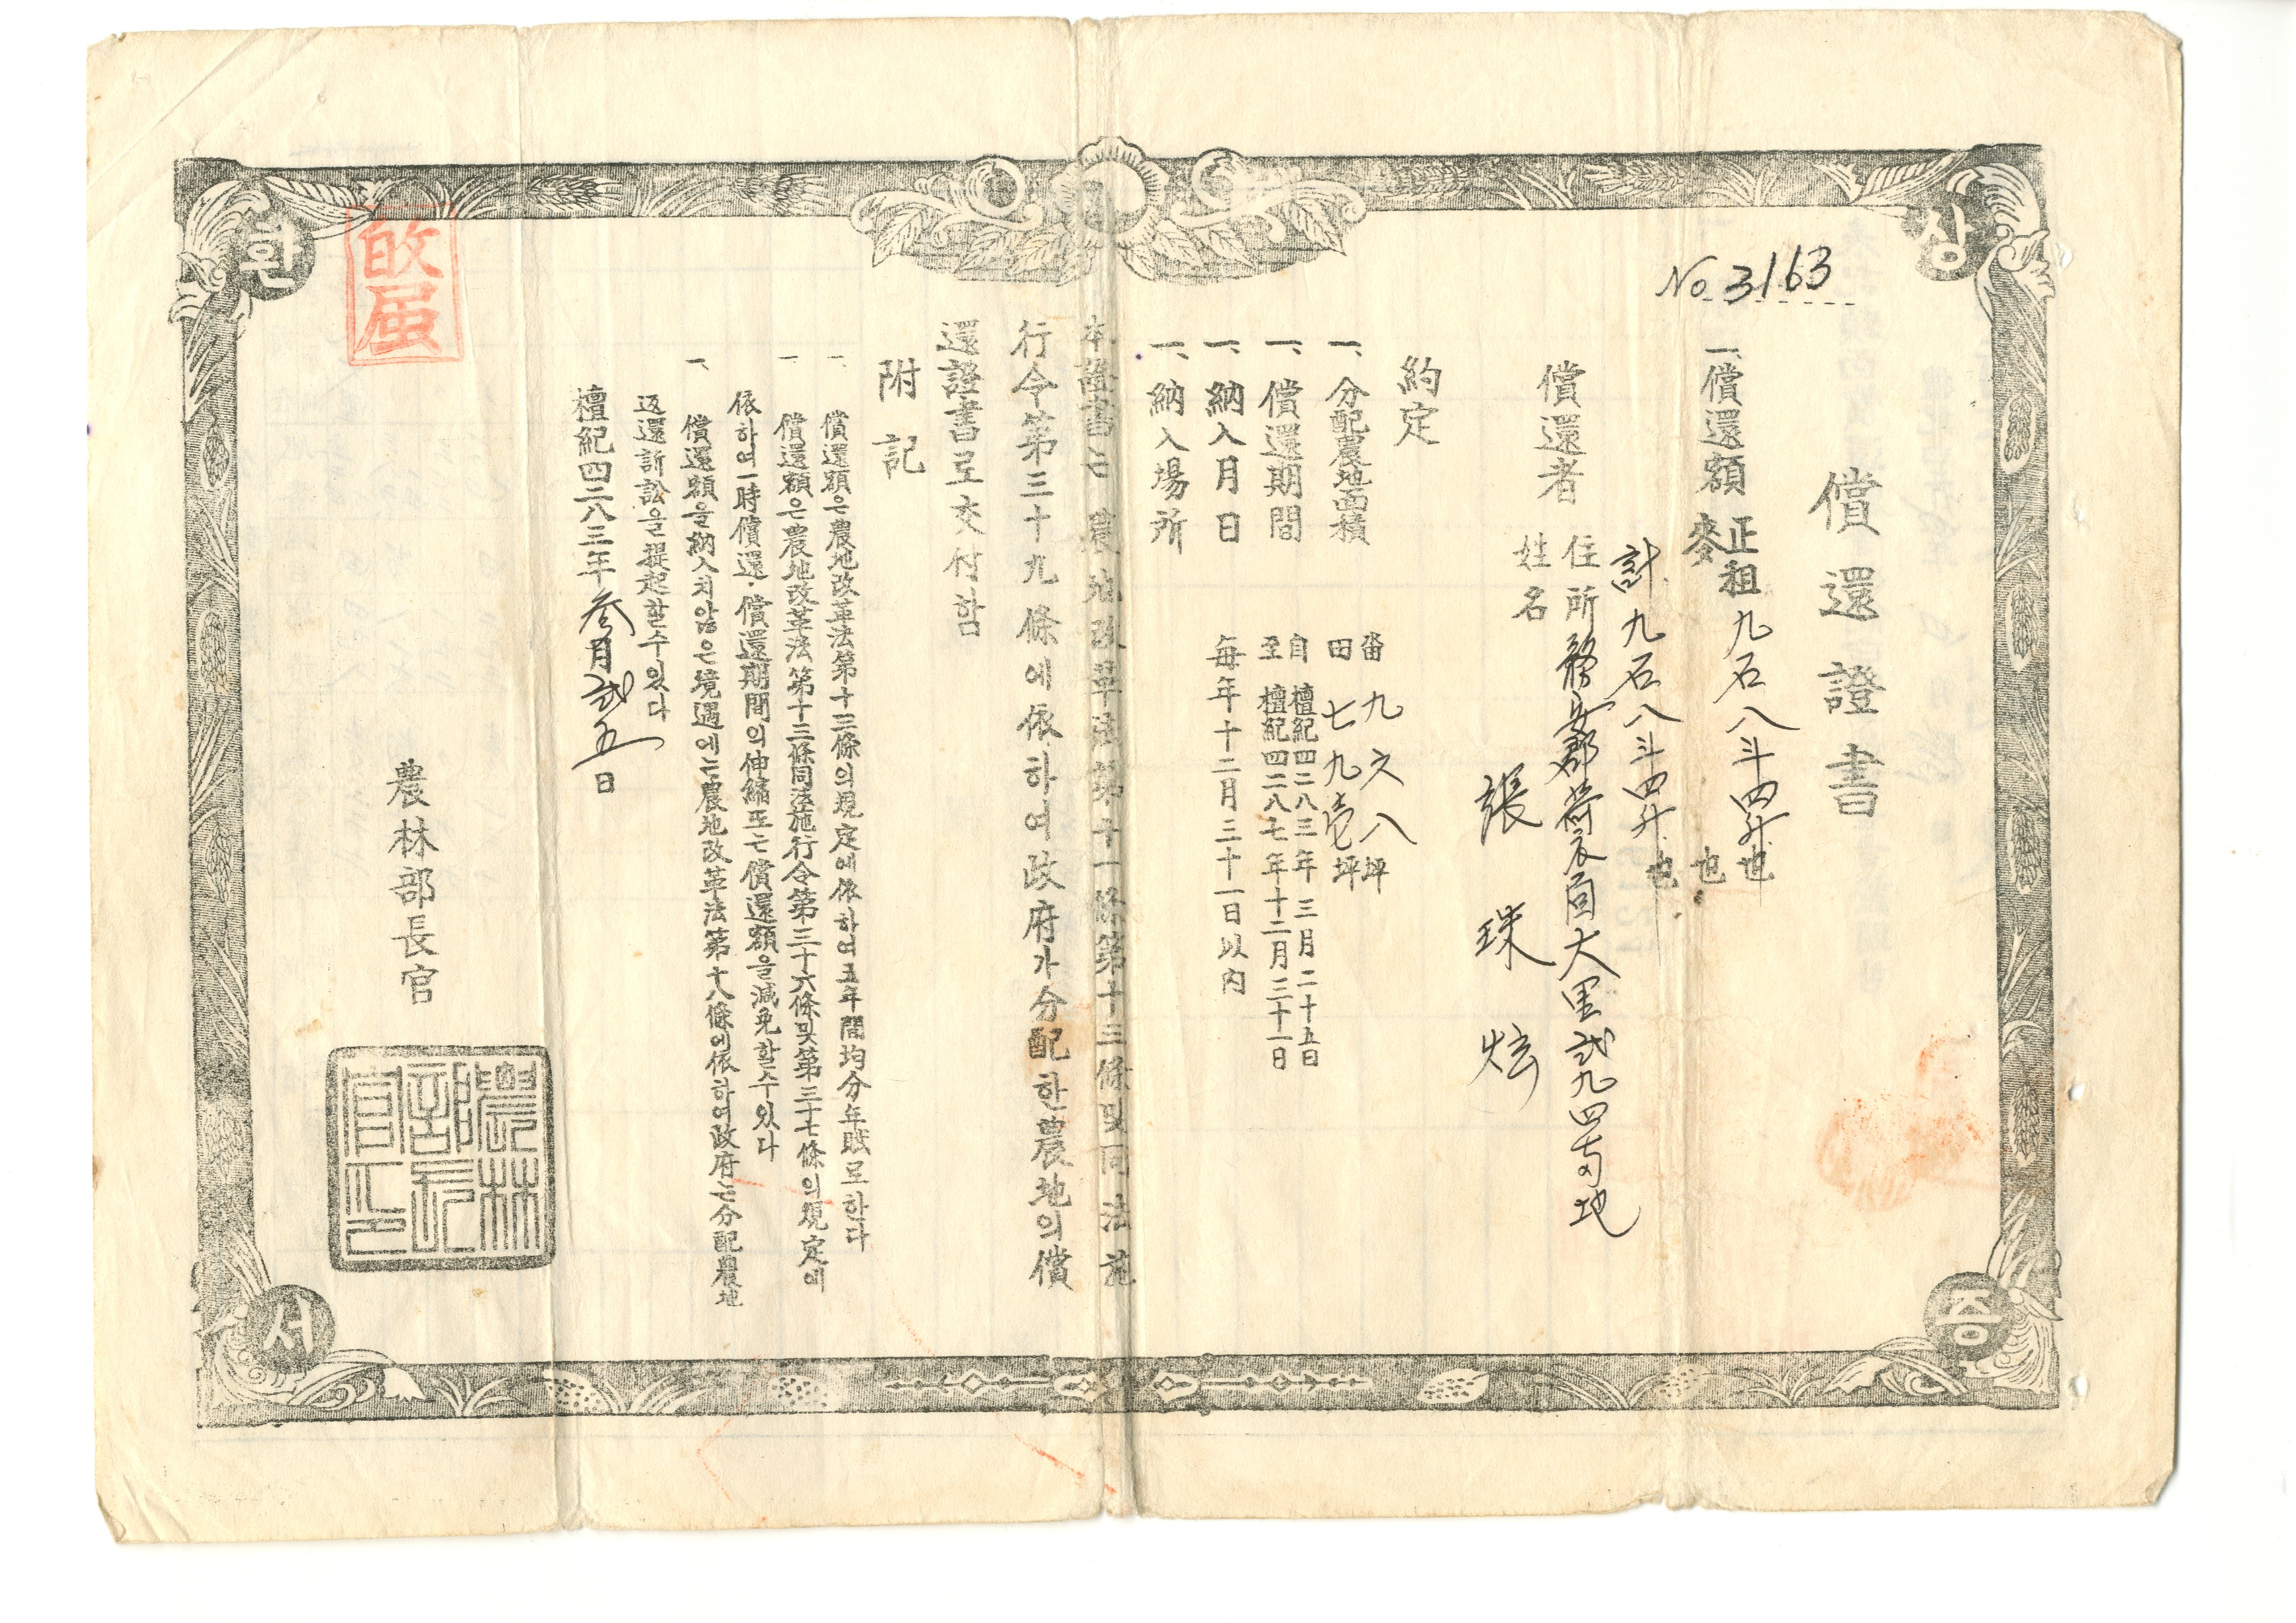 상환증서
No 3163
償還證書
一、償還額 正租 九石八斗四升也
麥 也
計 九石八斗四升也
償還者
住所 務安郡 荷衣面 大里 弍九四番地
姓名 張 珠 炫
約定
一、分配農地面積 畓 九六八坪
田 七九壱坪
一、償還期間 自 檀紀四二八三年 三月二十五日
至 檀紀四二八七年十二月三十一日
一、納入月日 每年十二月三十一日以內
一、納入場所
本證書는 農地改革法第十一條第十三條및同法施
行令第三十九條에依하여政府가分配한農地의償
還證書로交付함
附記
一、償還額은農地改革法第十三條의規定에依하여五年間均分年賦로한다
一、償還額은農地改革法第十三條同法施行令第三十六條및第三十七條의規定에
依하여一時償還·償還期間의伸縮또는償還額을減免할수있다
一、償還額을納入치않은境遇에는農地改革法第十八條에依하여政府는分配農地
返還訴訟을提起할수있다
檀紀四二八三年 参月弍五日
農林部長官
農林部長官之印